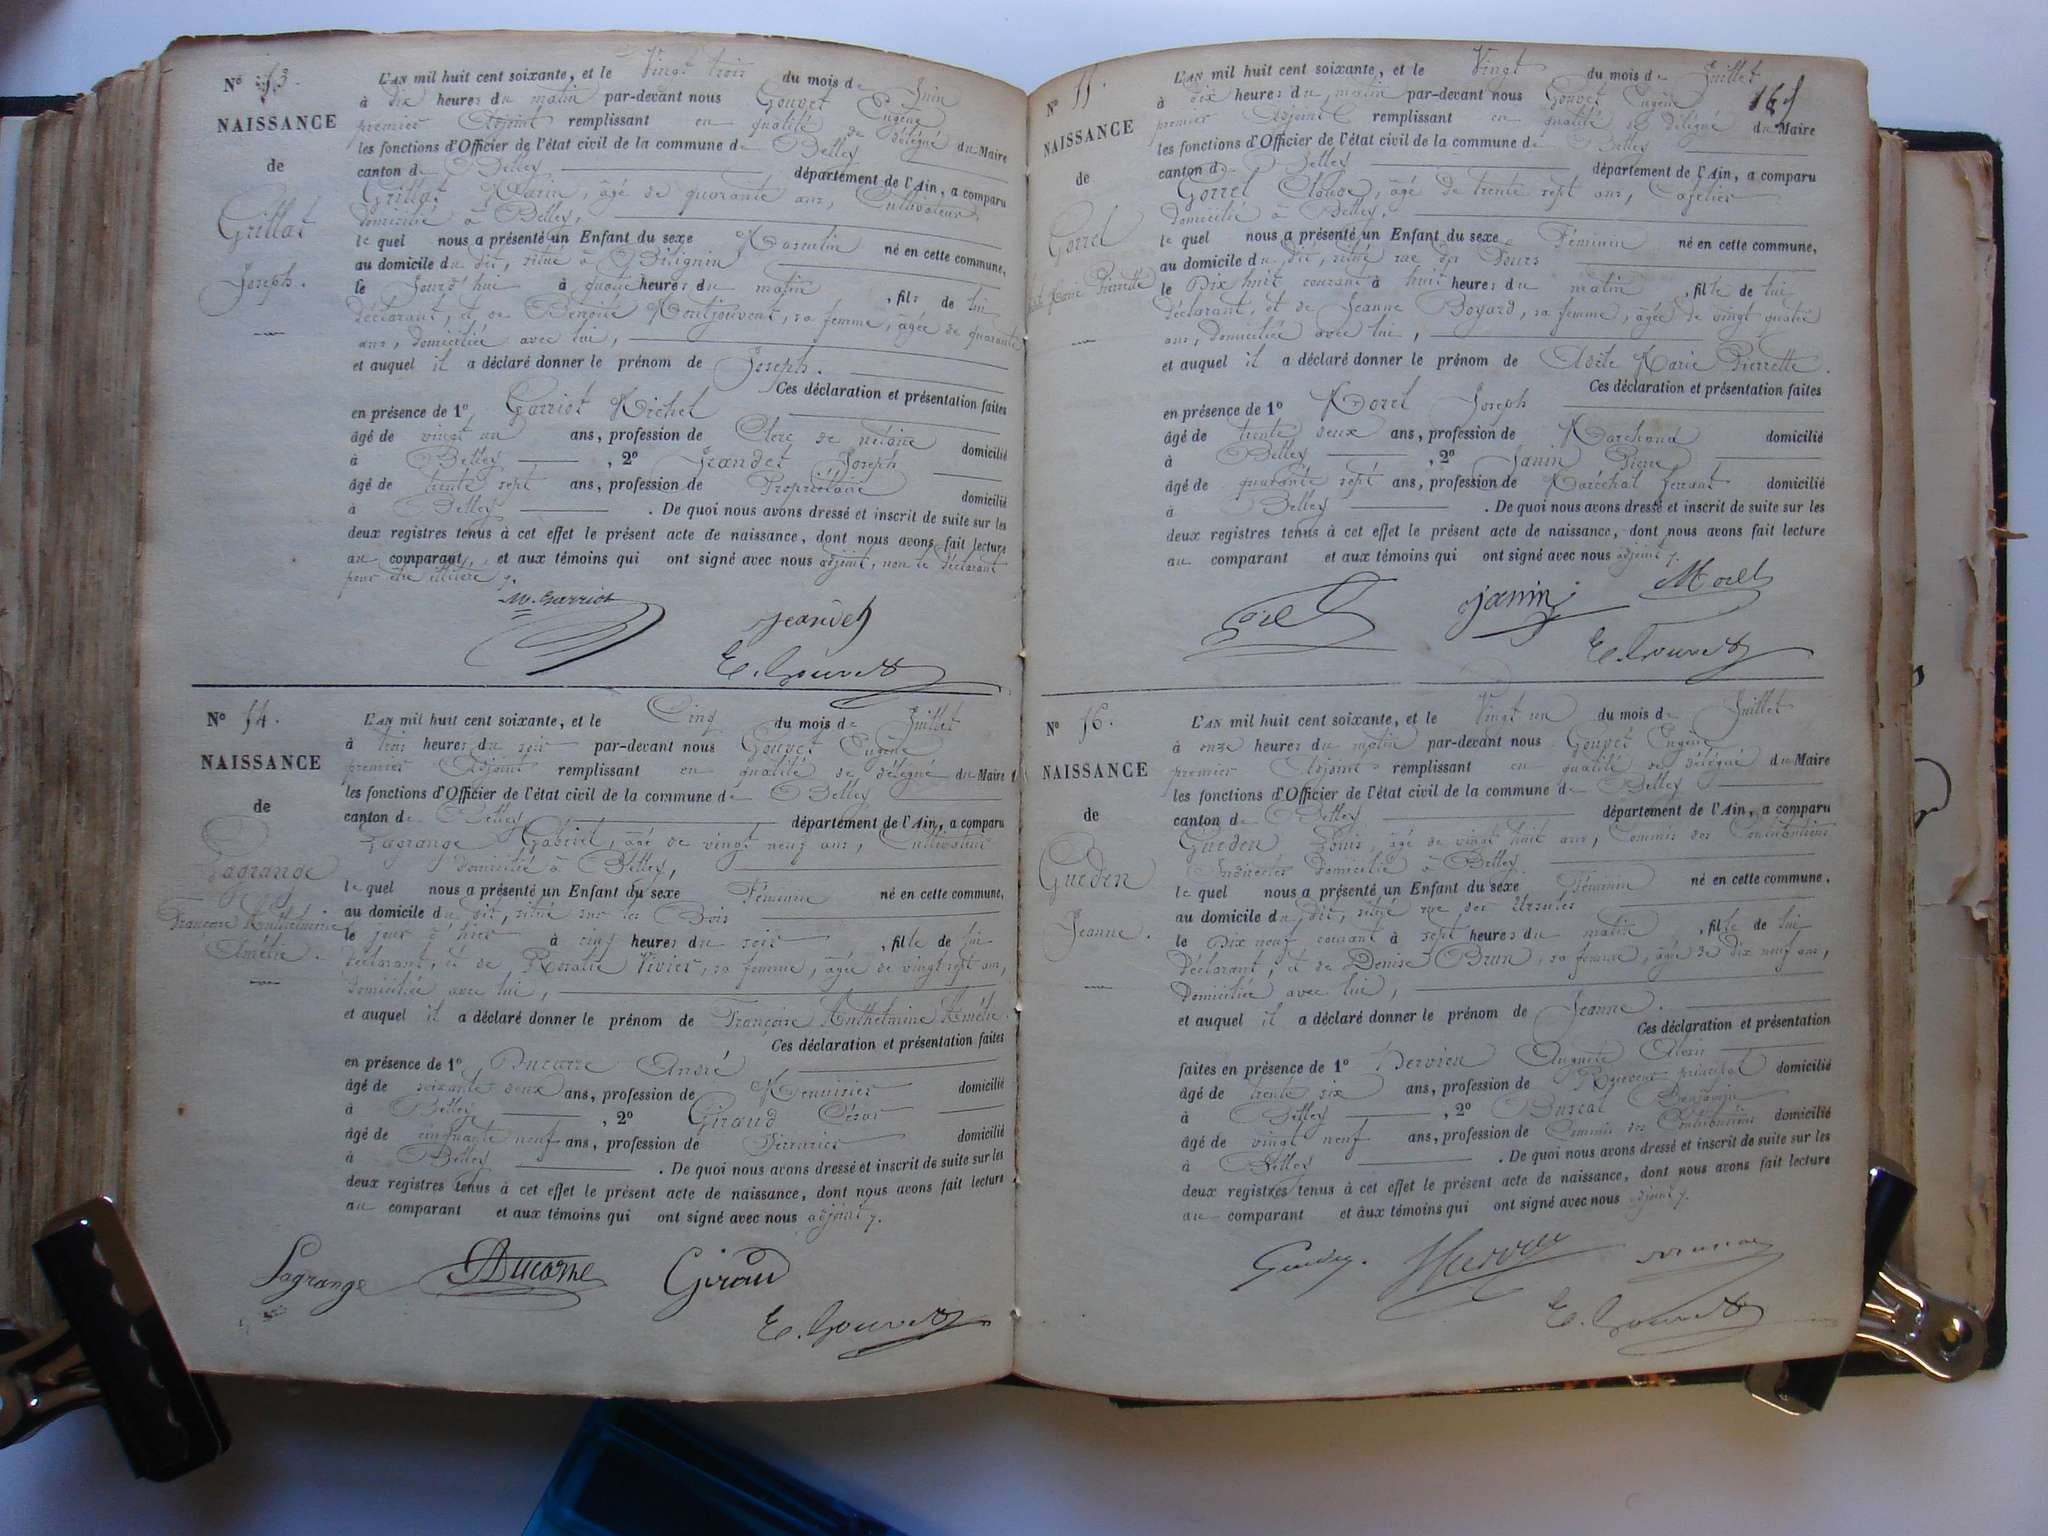 N° 53.
NAISSANCE
de
Grillat
Joseph.
L'AN mil huit cent soixante, et le Vingt trois du mois de Juin
à dix heures du matin par-devant nous Gouvet Eugène
premier Adjoint remplissant en qualité de délégué du Maire
les fonctions d'Officier de l'état civil de la commune de Belley
canton de Belley département de l'Ain, a comparu
Grillat Marin, âgé de quarante ans, Cultivateur,
domicilié à Belley,
le quel nous a présenté un Enfant du sexe Masculin né en cette commune,
au domicile du dit, situé à
le Jourd'hui à quatre heures du matin, fils de lui
déclarant, et de Benoîte Montjouvent, sa femme, âgée de quarante
ans, domiciliée avec lui,
et auquel il a déclaré donner le prénom de Joseph.
Ces déclaration et présentation faites
en présence de 1° Garriot Michel
âgé de vingt un ans, profession de Clerc de notaire domicilié
à Belley, 2° Jeandet Joseph
âgé de trente sept ans, profession de Propriétaire domicilié
à Belley. De quoi nous avons dressé et inscrit de suite sur les
deux registres tenus à cet effet le présent acte de naissance, dont nous avons fait lecture
au comparant, et aux témoins qui ont signé avec nous adjoint, non le déclarant
pour être illitéré
M. Garriot
Jeandet
E. Gouvet
N° 54.
NAISSANCE
de
Lagrange
Françoise Anthelmine
Amélie.
L'AN mil huit cent soixante, et le Cinq du mois de Juillet
à trois heures du soir par-devant nous Gouvet Eugène
premier Adjoint remplissant en qualité de délégué du Maire
les fonctions d'Officier de l'état civil de la commune de Belley
canton de Belley département de l'Ain, a comparu
Lagrange Gabriel, âgé de vingt neuf ans, Cultivateur
domicilié à Belley,
le quel nous a présenté un Enfant du sexe Féminin né en cette commune,
au domicile du dit, situé sur les Bois
le jour d'hier à cinq heures du soir, fille de lui
déclarant, et de Rosalie Vivier, sa femme, âgée de vingt sept ans,
domiciliée avec lui,
et auquel il a déclaré donner le prénom de Françoise Anthelmine Amélie.
Ces déclaration et présentation faites
en présence de 1° Ducarre André
âgé de soixante deux ans, profession de Menuisier domicilié
à Belley, 2° Giraud César
âgé de cinquante neuf ans, profession de Serrurier domicilié
à Belley. De quoi nous avons dressé et inscrit de suite sur les
deux registres tenus à cet effet le présent acte de naissance, dont nous avons fait lecture
au comparant et aux témoins qui ont signé avec nous adjoint
Lagrange
Giraud
E. Gouvet
165
N° 55.
NAISSANCE
de
Gorrel
Adèle Marie Pierrette
L'AN mil huit cent soixante, et le Vingt du mois de Juillet
à dix heures du matin par-devant nous Gouvet Eugène
premier Adjoint remplissant en qualité de délégué du Maire
les fonctions d'Officier de l'état civil de la commune de Belley
canton de Belley département de l'Ain, a comparu
Gorrel Claude, âgé de trente sept ans, Cafetier
domicilié à Belley,
le quel nous a présenté un Enfant du sexe Féminin né en cette commune,
au domicile du dit, situé rue des Fours
le Dix huit courant à huit heures du matin, fille de lui
déclarant, et de Jeanne Boyard, sa femme, âgée de vingt quatre
ans, domiciliée avec lui,
et auquel il a déclaré donner le prénom de Adèle Marie Pierrette.
Ces déclaration et présentation faites
en présence de 1° Morel Joseph
âgé de trente deux ans, profession de Marchand domicilié
à Belley, 2° Janin Pierre
âgé de quarante sept ans, profession de Maréchal ferrant domicilié
à Belley. De quoi nous avons dressé et inscrit de suite sur les
deux registres tenus à cet effet le présent acte de naissance, dont nous avons fait lecture
au comparant et aux témoins qui ont signé avec nous adjoint
Janin
Morel
E. Gouvet
N° 56.
NAISSANCE
de
Gueden
Jeanne.
L'AN mil huit cent soixante, et le Vingt un du mois de Juillet
à onze heures du matin par-devant nous Gouvet Eugène
premier Adjoint remplissant en qualité de délégué du Maire
les fonctions d'Officier de l'état civil de la commune de Belley
canton de Belley département de l'Ain, a comparu
Gueden Louis, âgé de vingt huit ans, Commis des Contributions
Indirectes domicilié à Belley.
le quel nous a présenté un Enfant du sexe Féminin né en cette commune,
au domicile du dit, situé rue des Ursules
le Dix neuf courant à sept heures du matin, fille de lui
déclarant, et de Denise Brun, sa femme, âgée de dix neuf ans,
domiciliée avec lui,
et auquel il a déclaré donner le prénom de Jeanne.
Ces déclaration et présentation
faites en présence de 1° Hervieu Auguste Alexis
âgé de trente six ans, profession de Receveur principal domicilié
à Belley, 2° Buscal Benjamin
âgé de vingt neuf ans, profession de Commis des Contributions domicilié
à Belley. De quoi nous avons dressé et inscrit de suite sur les
deux registres tenus à cet effet le présent acte de naissance, dont nous avons fait lecture
au comparant et aux témoins qui ont signé avec nous adjoint
E. Gouvet